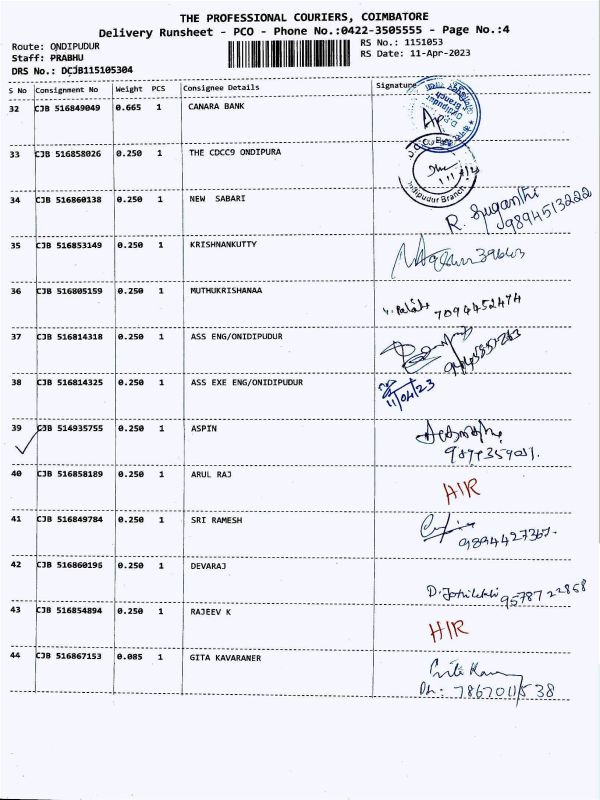 THE PROFESSIONAL COURIERS, COIMBATORE
Delivery Runsheet - PCO - Phone No.:0422-3505555 - Page No.:4
Route: ONDIPUDUR RS No.: 1151053
Staff: PRABHU RS Date: 11-Apr-2023
DRS No.: DCJB115105304
S No Consignment No Weight PCS Consignee Details Signature
32 CJB 516849049 0.665 1 CANARA BANK
33 CJB 516858026 0.250 1 THE CDCC9 ONDIPURA
Ondipudur Branch
34 CJB 516860138 0.250 1 NEW SABARI R. Suganthi
9894513222
35 CJB 516853149 0.250 1 KRISHNANKUTTY
36 CJB 516805159 0.250 1 MUTHUKRISHANAA
7094452474
37 CJB 516814318 0.250 1 ASS ENG/ONIDIPUDUR
38 CJB 516814325 0.250 1 ASS EXE ENG/ONIDIPUDUR
11/04/23
39 CJB 514935755 0.250 1 ASPIN
40 CJB 516858189 0.250 1 ARUL RAJ HIR
41 CJB 516849784 0.250 1 SRI RAMESH
9894427367.
42 CJB 516860196 0.250 1 DEVARAJ
9578722858
43 CJB 516854894 0.250 1 RAJEEV K HIR
44 CJB 516867153 0.085 1 GITA KAVARANER
Ph: 7867011538